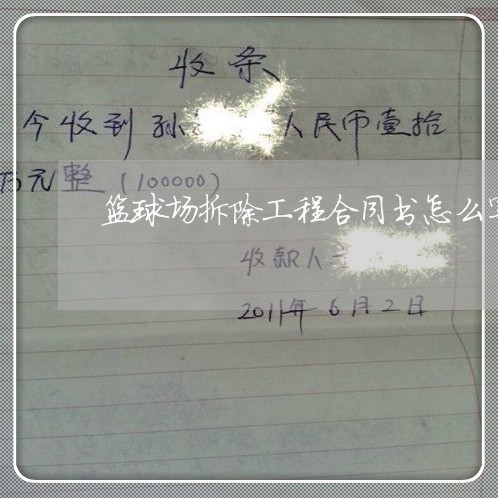 收条
今收到孙 人民币壹拾
万元整(100000)
篮球场拆除工程合同书怎么
收款人
2011年6月2日